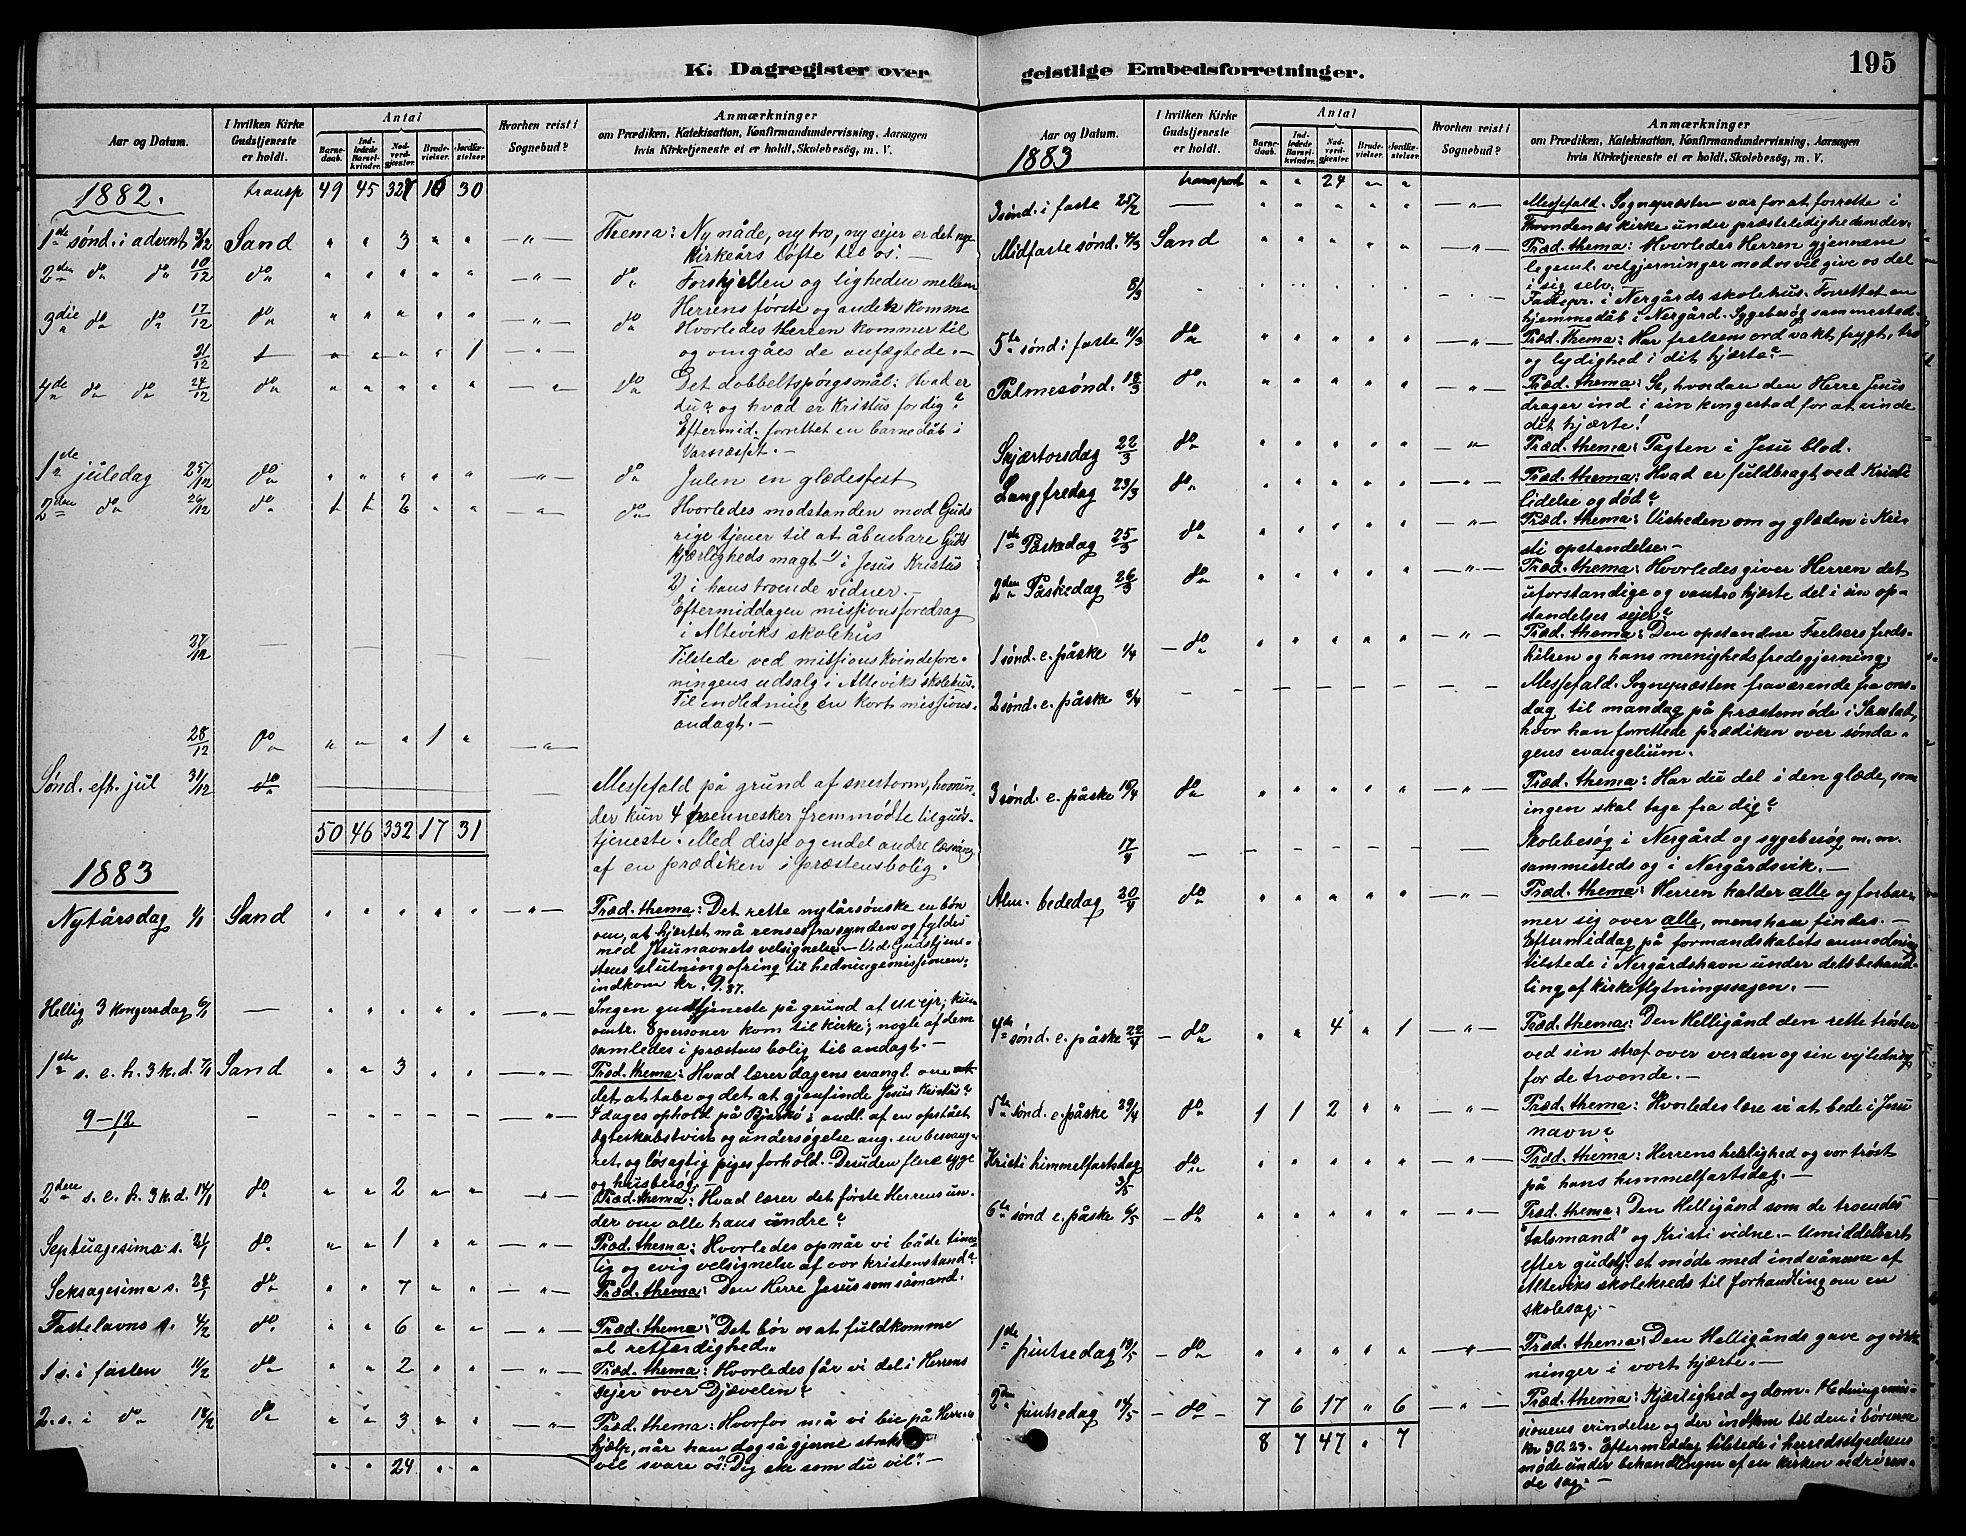 K. Dagregister over
Aar og Datum.
I hvilken Kirke Gudstjeneste er holdt.
Antal
Barnedaab.
Indledede Barselkvinder.
Nadverdgjester.
Brudevielser.
Jordfæstelser.
Hvorhen reist i Sognebud?
Anmærkninger
om Prædiken, Katekisation, Konfirmandundervisning, Aarsagen
hvis Kirketjeneste et er holdt, Skolebesøg, m. V.
1882. transp 49 45 30
1de sønd. i advent 3/12 Sand " " 3 " " — " — Thema: Ny nåde, ny tro, ny sejer er det nye
Kirkeårs løfte til os. —
2den do do 10/12 do " " " " " — " — do Forskjellen og ligheden mellem
Herrens første og andet komme
3die do do 17/12 do " " " " " — " — do Hvorledes Herren kommer til
21/12 1 — " — og omgåes de anfægtede. —
4de do do 24/12 do " " " " " — " — do Det dobbeltspørgsmål: Hvad er
du? og hvad er Kristus for dig?
Eftermid. forrettet en barnedåb i
Varnæsset. —
1ste juledag 25/12 do " " " " " — " — do Julen en glædesfest
2den do 26/12 do 1 1 2 " " — " — do Hvorledes modstanden mod Guds
rige tjener til at åbenbare Guds
kjærligheds magt 1) i Jesus Kristus
2) i hans troende vidner. —
Eftermiddagen missionsforedrag
i Alteviks skolehus
27/12 — Tilstede ved missionskvindefore-
ningens udsalg i Alteviks skolehus.
Til indledning en kort missions-
andagt. —
28/12 do " " " 1 " — " —
Sønd. eft. jul 31/12 do Messefald på grund af snestorm, hvorun-
der kun 4 mennesker fremmødte til guds-
50 46 332 17 31 tjeneste. Med disse og endel andre læsning
af en prædiken i præstens bolig.
1883
Nytårsdag 1/1 Sand " " " " " — " — Præd. thema: Det rette nytårsønske en bøn
om, at hjertet må renses fra synden og fyldes
med Jesu navnets velsignelse. — Ved Gudstjene-
stens slutning ofring til hedningemissionen;
indkom kr. 9.37.
Hellig 3 kongersdag 6/1 — " " " " " — " — Ingen gudstjeneste på grund af uvejr; kun
omtr. 8 personer kom til kirke; nogle af dem
samledes i præstens bolig til andagt. —
1ste s. e. h. 3 k. d. 7/1 Sand " " 3 " " — " — Præd. thema: Hvad lærer dagens evangl. om
det at tabe og det at gjenfinde Jesus Kristus?
9–12/1 — — — — — — — " — 4 dages ophold på Bjarkø i andl. af en opstået
ægteskabstvist og undersøgelse ang. en besvang-
ret og løsagtig piges forhold. Desuden flere syge
og husbesøg. —
2den s. e. h. 3 k. d. 14/1 do " " 2 " " — " — Præd. thema: Hvad lærer det første Herrens un-
der om alle hans undre?
Septuagesima s. 21/1 do " " 1 " " — " — Præd. thema: Hvorledes opnår vi både time-
lig og evig velsignelse af vor kristenstand?
Seksagesima s. 28/1 do " " 7 " " — " — Præd. thema: Den Herre Jesus som såmand.
Fastelavns s. 4/2 do " " 6 " " — " — Præd. thema: "Det bør os at fuldkomme
al retfærdighed."
1 s. i fasten 11/2 do " " 2 " " — " — Præd. thema: Hvorledes får vi del i Herrens
sejer over Djævelen?
2. s. i do 18/2 do " " 3 " " — " — Præd. thema: Hvorfor må vi bie på Herrens
hjælp, når han dog så gjerne straks
" " 24 " " vil svare os: "Dig ske som du vil". —
geistlige Embedsforretninger.
195
Aar og Datum.
1883
I hvilken Kirke Gudstjeneste er holdt.
Antal
Barnedaab.
Indledede Barselkvinder.
Nadverdgjester.
Brudevielser.
Jordfæstelser.
Hvorhen reist i Sognebud?
Anmærkninger
om Prædiken, Katekisation, Konfirmandundervisning, Aarsagen
hvis Kirketjeneste et er holdt, Skolebesøg, m. V.
transport " " 24 " "
3 sønd. i faste 25/2 — " " " " " — " — Messefald. Sognepræsten var for at forrette i
Throndenes kirke under præsteledighedender.
Midfaste sønd. 4/3 Sand " " " " " — " — Præd. thema: Hvorledes Herren gjennem
legeml. velgjerninger mod os vil give os del
i sig selv.
8/3 Fastepr. i Nergårds skolehus. Forrettet en
hjemmedåb i Nergård. Sygebesøg sammested.
5te sønd. i faste 11/3 do " " " " " — " — Præd. Thema: Har frelsens ord vakt frygt, tro
og lydighed i dit hjerte? —
Palmesønd. 18/3 do " " " " " — " — Præd. thema: Se, hvordan den Herre Jesus
drager ind i sin kongestad for at vinde
dit hjerte!
Skjærtorsdag 22/3 do " " " " " — " — Præd. thema: Pagten i Jesu blod.
Langfredag 23/3 do " " " " " — " — Præd. thema: Hvad er fuldbragt ved Kristi
lidelse og død?
1ste Påskedag 25/3 do " " " " " — " — Præd. thema: Visheden om og glæden i Kri-
sti opstandelse. —
2den Påskedag 26/3 do " " " " " — " — Præd. thema: Hvorledes giver Herren det
uforstandige og vantro hjerte del i sin op-
standelses sejer?
1 sønd. e. påske 1/4 — do " " " " " — " — Præd. thema: Den opstandne Frelsers freds-
hilsen og hans menigheds fredsgjerning.
2 sønd. e. påske 8/4 — — — — — — — Messefald. Sognepræsten fraværende fra ons-
dag til mandag på præstemøde i Sørstad,
hvor han forrettede prædiken over sønda-
gens evangelium.
3 sønd. e. påske 15/4 do " " " " " — " — Præd. thema: Har du del i den glæde, som
ingen skal tage fra dig?
17/4 — — — — — — — Skolebesøg i Nergård og sygebesøg m. m.
sammesteds og i Nergårdsvik. —
Alm. bededag 20/4 do " " " " " — " — Præd. thema: Herren kalder alle og forbar-
mer sig over alle, mens han findes. —
Eftermiddag på formandskabets anmodning
tilstede i Nergårdshavn under dets behand-
ling af kirkeflytningssagen. —
4de sønd. e. påske 22/4 — do " " 4 " 1 — " — Præd. thema: Den Helligånd den rette trøster
ved sin straf over verden og sin vejledning
for de troende. —
5te sønd. e. påske 29/4 do 1 1 2 " " — " — Præd. thema: Hvorledes lære vi at bede i Jesu
navn?
Kristi himmelfartsdag 3/5 do " " " " " — " — Præd. thema: Herrens herlighed og vor trøst
på hans himmelfartsdag. —
6te sønd e. påske 6/5 — do " " " " " — " — Præd. thema: Den Helligånd som de troendes
"talsmand" og Kristi vidne. — Umiddelbart
efter gudstj. et møde med indvånerne af
Alteviks skolekreds til forhandling om en
skolesag. —
1ste pintsedag 13/5 — do " " " " " — " — Præd. thema: Den Helligånds gave og virk-
ninger i vort hjerte. —
2den pintsedag 14/5 — do — 7 6 17 " 6 — " — Præd. thema: Kjærlighed og dom. Hedningemis-
sionens erindelse og der indkom til den i bøsserne
8 7 47 " 7 Kr 30.23. Eftermiddag tilstede i herredsstyrelsens
møde under behandlingen af en kirken vedrøren-
de sag. —